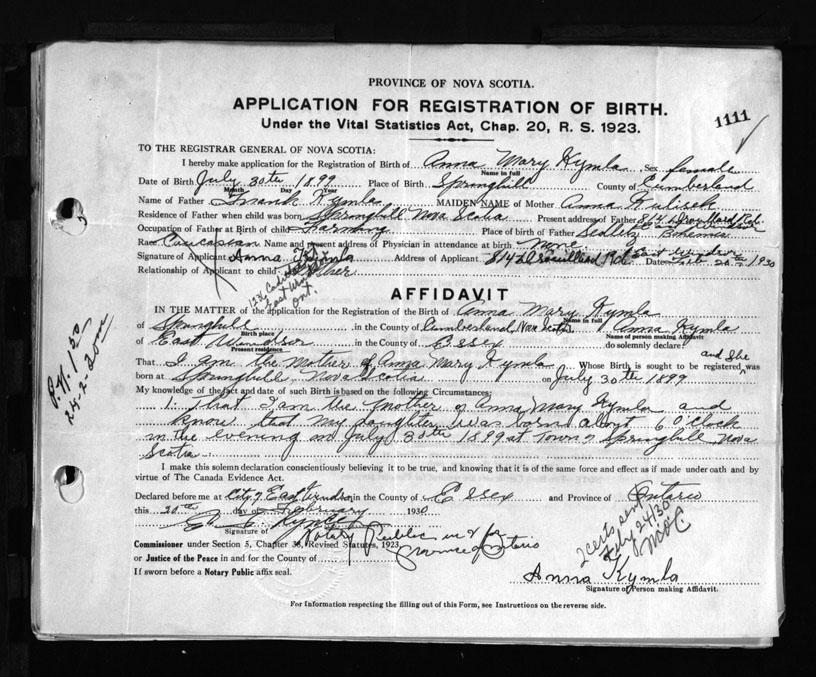 PROVINCE OF NOVA SCOTIA.
APPLICATION FOR REGISTRATION OF BIRTH.
1111
Under the Vital Statistics Act, Chap. 20, R. S. 1923.
TO THE REGISTRAR GENERAL OF NOVA SCOTIA:
I hereby make application for the Registration of Birth of Anna Mary Kymla Sex female
Name in full
Date of Birth July 30th 1899 Place of Birth Springhill County of Cumberland
Month Day Year
Name of Father Frank Kymla MAIDEN NAME of Mother Anna
Residence of Father when child was born Springhill Nova Scotia Present address of Father 814 Drouillard Rd.
Occupation of Father at Birth of child Farming Place of birth of Father Bohemia
Race Caucasian Name and present address of Physician in attendance at birth none. East Windsor
Signature of Applicant Anna Kymla Address of Applicant 814 Drouillard Rd. Date Feb 20th 1930
Relationship of Applicant to child
East Ont.
AFFIDAVIT
IN THE MATTER of the application for the Registration of the Birth of Anna Mary Kymla
Name in full
of Springhill, in the County of Cumberland, Nova Scotia I Anna Kymla
Birth place Name of person making Affidavit
of East Windsor in the County of Essex do solemnly declare:
Present residence
and she
That I am the Mother of Anna Mary Kymla Whose Birth is sought to be registered was
born at Springhill, Nova Scotia on July 30th 1899
My knowledge of the fact and date of such Birth is based on the following Circumstances:
1. That I am the Mother of Anna Mary Kymla and
know that my daughter was born about 6 O'Clock
in the evening on July 30th 1899 at Town of Springhill, Nova
Scotia
P.N. 120
24-2-30
I make this solemn declaration conscientiously believing it to be true, and knowing that it is of the same force and effect as if made under oath and by
virtue of The Canada Evidence Act.
Declared before me at City of East Windsor in the County of Essex and Province of Ontario
this 20th day of February 1930
Signature of
Notary Public in & for
Province of Ontario
Commissioner under Section 5, Chapter 36, Revised Statutes, 1923
or Justice of the Peace in and for the County of
If sworn before a Notary Public affix seal.
2 certs sent
Feby 24/30
Anna Kymla
Signature of Person making Affidavit.
For Information respecting the filling out of this Form, see Instructions on the reverse side.